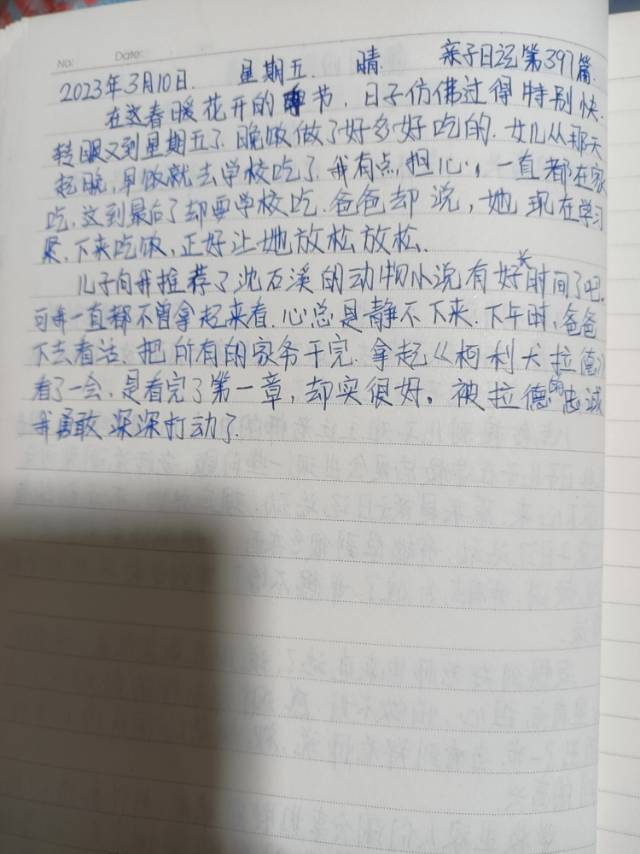 No:
Date:
2023年3月10日. 星期五. 晴. 亲子日记第397篇.
在这春暖花开的季节,日子仿佛过得特别快.
转眼又到星期五了.晚饭做了好多好吃的.女儿从那天
起晚,早饭就去学校吃了.我有点担心,一直都在家
吃,这到最后了却要学校吃.爸爸却说,她现在学习
累,下来吃饭,正好让她放松放松.
儿子向我推荐了沈石溪的动物小说有好长时间了吧.
可我一直都不曾拿起来看.心总是静不下来.下午时,爸爸
下去看活.把所有的家务干完.拿起《柯利犬拉德》
看了一会,是看完了第一章,却实很好,被拉德的忠诚
我勇敢深深打动了.